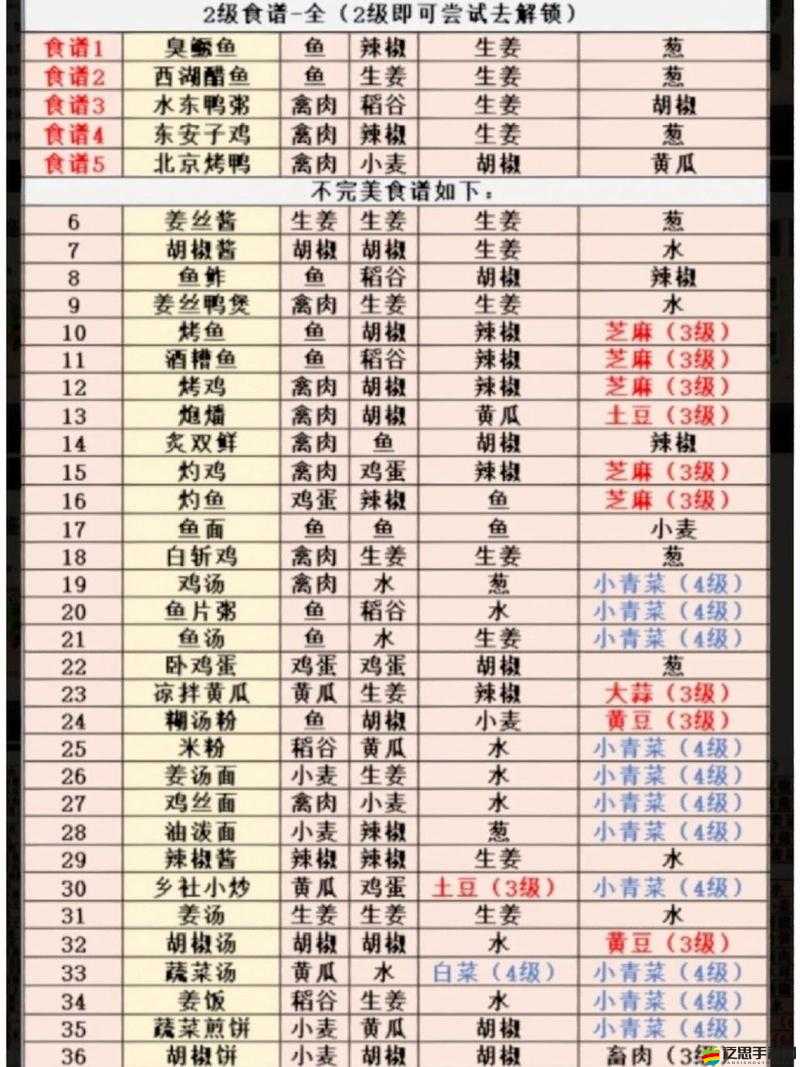 2级食谱-全（2级即可尝试去解锁）
食谱1 臭鳜鱼 鱼 辣椒 生姜 葱
食谱2 西湖醋鱼 鱼 生姜 生姜 葱
食谱3 水东鸭粥 禽肉 稻谷 生姜 胡椒
食谱4 东安子鸡 禽肉 辣椒 生姜 葱
食谱5 北京烤鸭 禽肉 小麦 胡椒 黄瓜
不完美食谱如下：
6 姜丝酱 生姜 生姜 生姜 葱
7 胡椒酱 胡椒 胡椒 生姜 水
8 鱼鲊 鱼 稻谷 胡椒 辣椒
9 姜丝鸭煲 禽肉 生姜 生姜 水
10 烤鱼 鱼 胡椒 辣椒 芝麻（3级）
11 酒糟鱼 鱼 稻谷 辣椒 芝麻（3级）
12 烤鸡 禽肉 胡椒 辣椒 芝麻（3级）
13 炮燔 禽肉 胡椒 黄瓜 土豆（3级）
14 炙双鲜 禽肉 鱼 胡椒 辣椒
15 灼鸡 禽肉 鸡蛋 辣椒 芝麻（3级）
16 灼鱼 鸡蛋 辣椒 鱼 芝麻（3级）
17 鱼面 鱼 鱼 鱼 小麦
18 白斩鸡 禽肉 生姜 生姜 葱
19 鸡汤 禽肉 水 葱 小青菜（4级）
20 鱼片粥 鱼 稻谷 水 小青菜（4级）
21 鱼汤 鱼 水 生姜 小青菜（4级）
22 卧鸡蛋 鸡蛋 鸡蛋 胡椒 葱
23 凉拌黄瓜 黄瓜 生姜 辣椒 大蒜（3级）
24 糊汤粉 鱼 胡椒 小麦 黄豆（3级）
25 米粉 稻谷 黄瓜 水 小青菜（4级）
26 姜汤面 小麦 生姜 水 小青菜（4级）
27 鸡丝面 禽肉 小麦 水 小青菜（4级）
28 油泼面 小麦 辣椒 葱 小青菜（4级）
29 辣椒酱 辣椒 辣椒 生姜 水
30 乡社小炒 黄瓜 鸡蛋 土豆（3级） 小青菜（4级）
31 姜汤 生姜 生姜 生姜 水
32 胡椒汤 胡椒 胡椒 水 黄豆（3级）
33 蔬菜汤 黄瓜 水 白菜（4级） 小青菜（4级）
34 姜饭 稻谷 生姜 水 小青菜（4级）
35 蔬菜煎饼 小麦 黄瓜 胡椒 小青菜（4级）
36 胡椒饼 小麦 胡椒 胡椒 畜肉（3级
泛思手